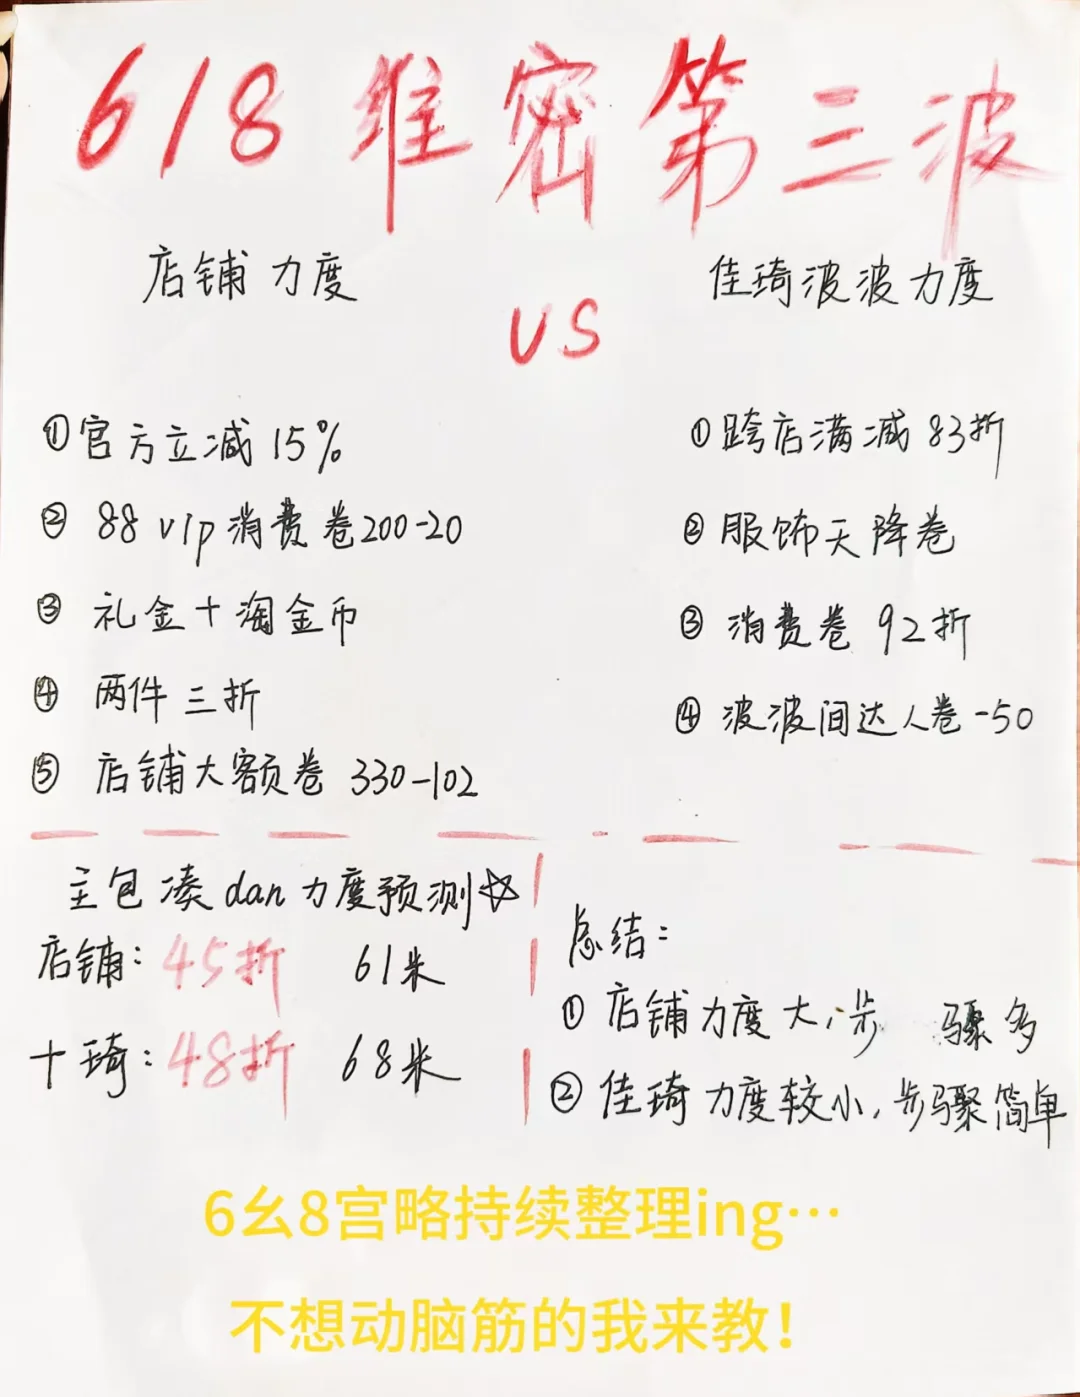 618维密第三波
店铺力度
VS
佳琦波波力度
①官方立减15%
②88vip消费卷200-20
③礼金+淘金币
④两件三折
⑤店铺大额卷330-102
①跨店满减83折
②服饰天降卷
③消费卷92折
④波波间达人卷-50
主包凑dan力度预测☆
店铺：45折 61米
十琦：48折 68米
总结：
①店铺力度大，步骤多
②佳琦力度较小，步骤简单
6幺8宫略持续整理ing…
不想动脑筋的我来教！